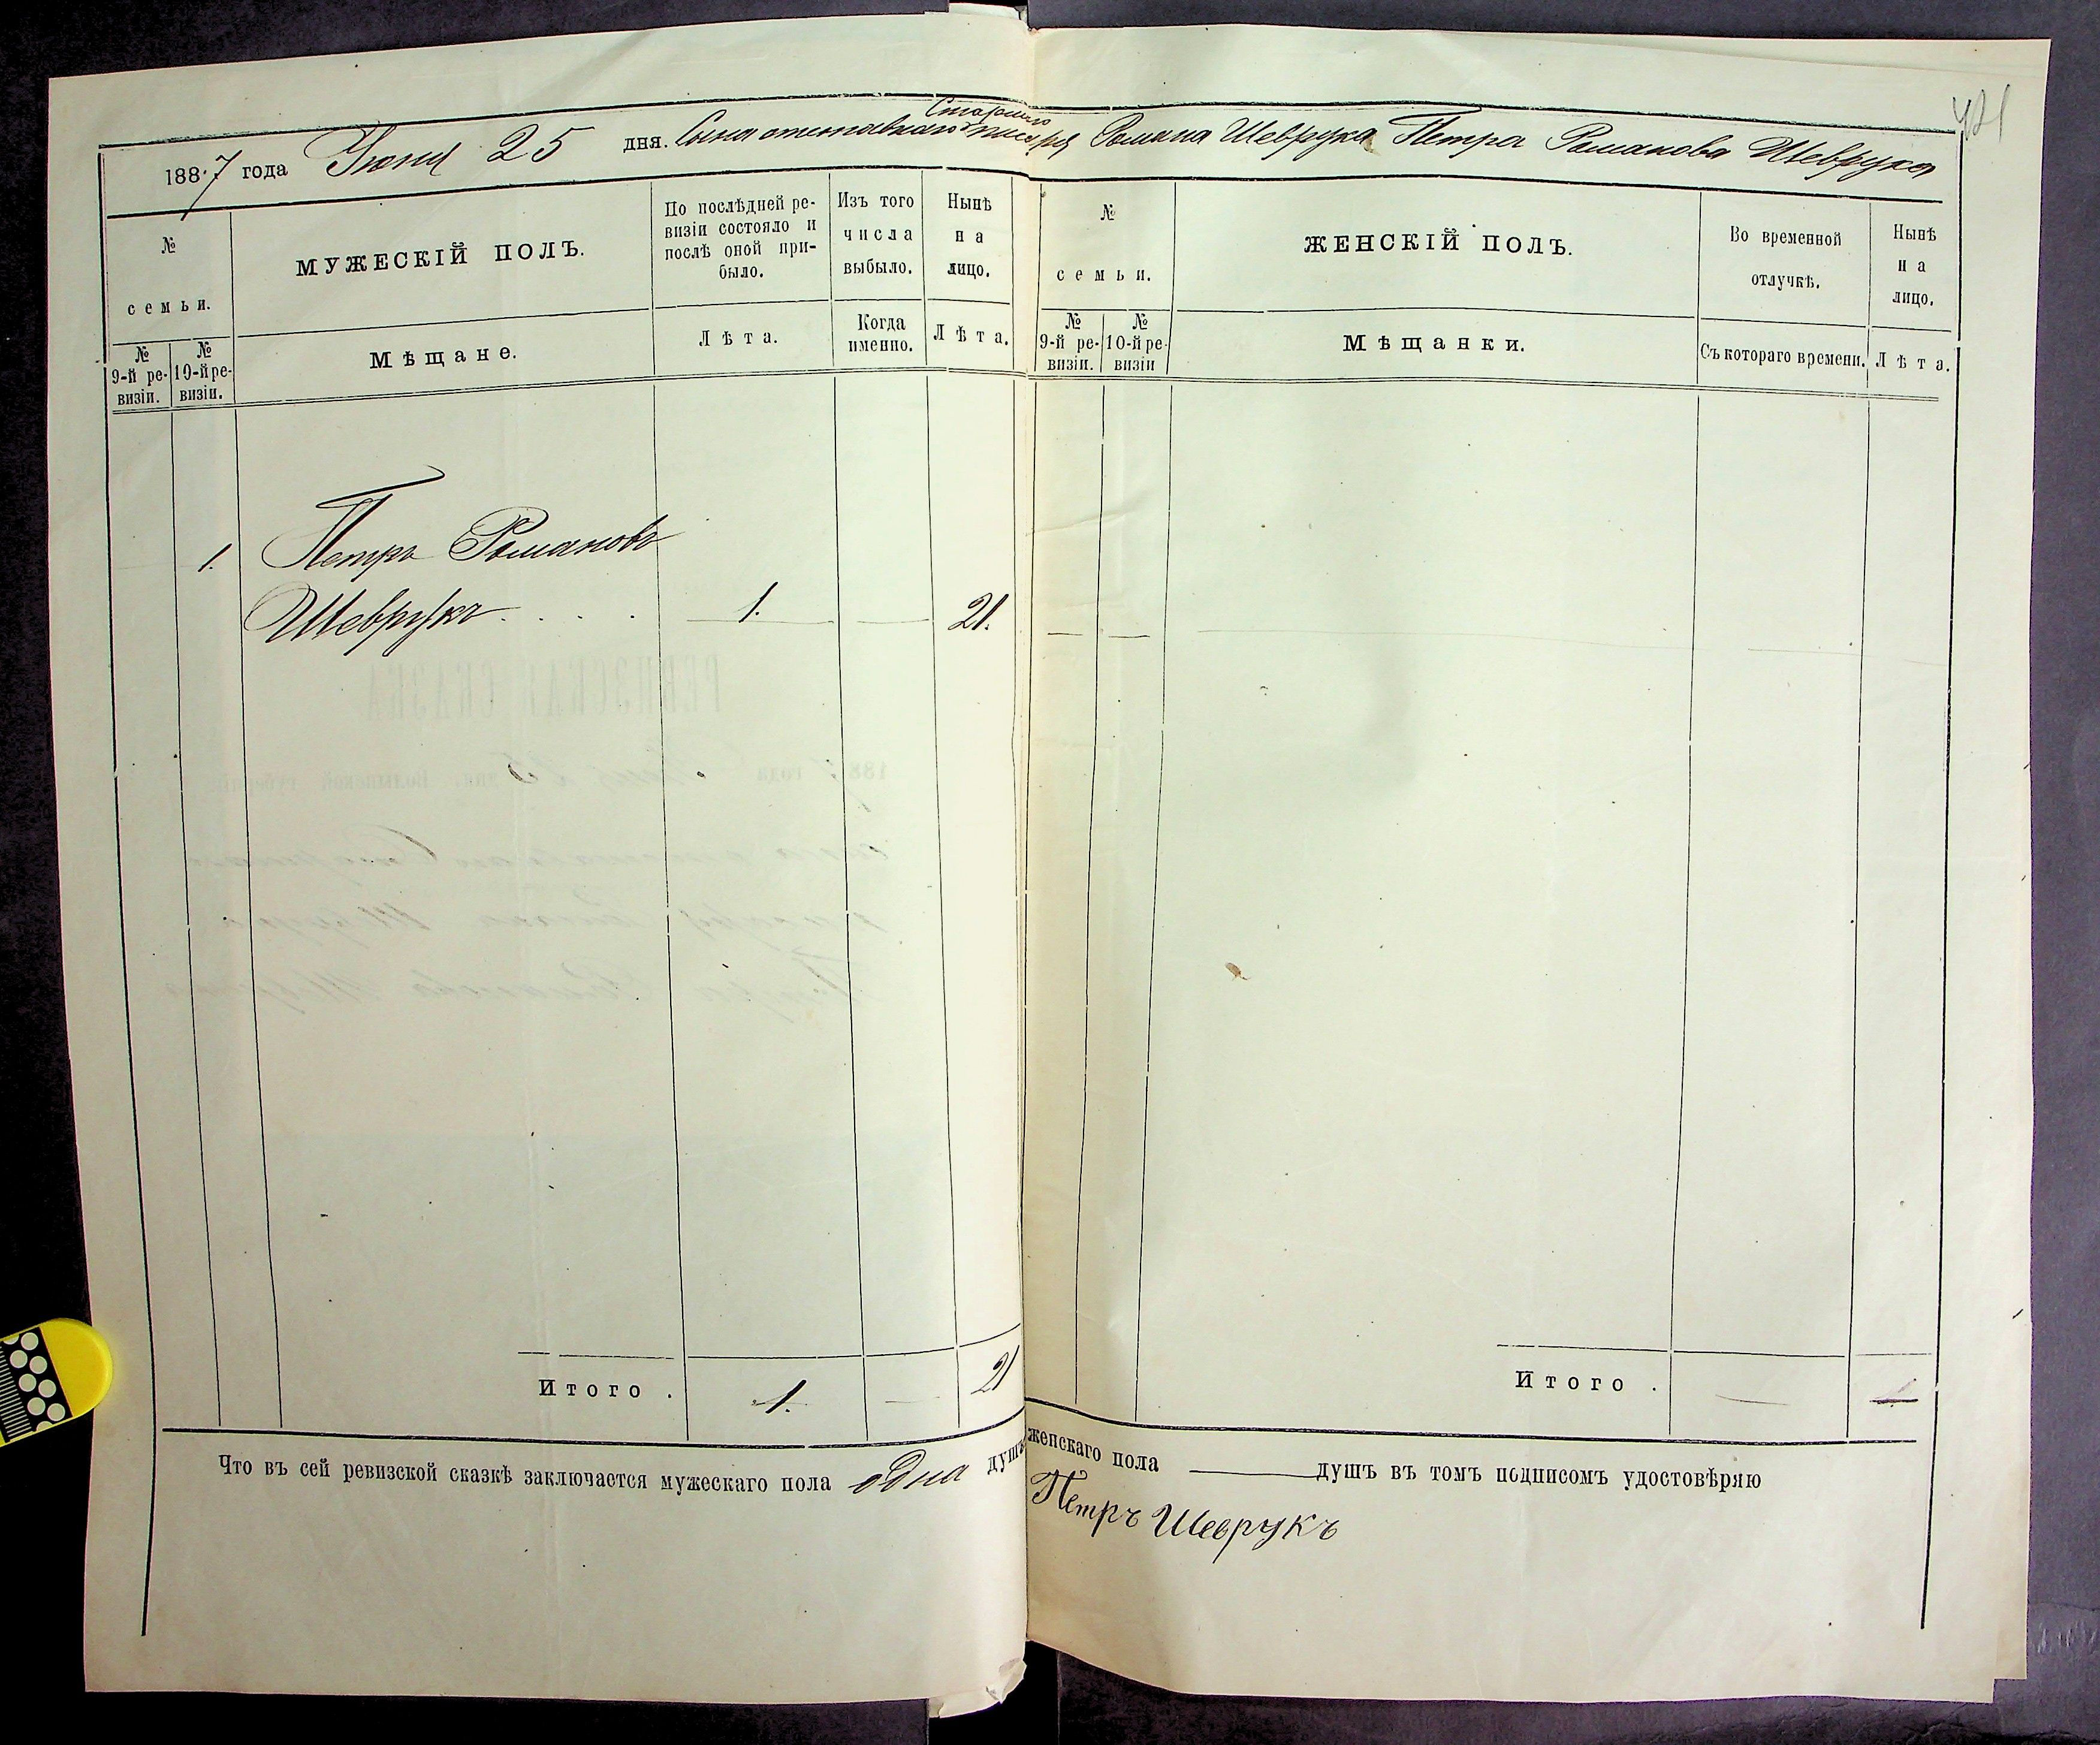 421
1887 года Іюня 25 дня. Сына отставнаго Старшаго писаря Романа Шеврука Петра Романова Шеврука
№ семьи.
МУЖЕСКІЙ ПОЛЪ.
По послѣдней ре-
визіи состояло и
послѣ оной при-
было.
Изъ того
числа
выбыло.
Нынѣ
на
лицо.
№
9-й ре-
визіи.
№
10-й ре-
визіи.
Мѣщане.
Лѣта.
Когда
именно.
Лѣта.
1. Петръ Романовъ
Шеврукъ . . . . 1. — 21.
Итого . 1. — 21
Что въ сей ревизской сказкѣ заключается мужескаго пола одна душъ
№
семьи.
ЖЕНСКІЙ ПОЛЪ.
Во временной
отлучкѣ.
Нынѣ
на
лицо.
№
9-й ре-
визіи.
№
10-й ре-
визіи
Мѣщанки.
Съ котораго времени.
Лѣта.
Итого .
женскаго пола — душъ въ томъ подписомъ удостовѣряю
Петръ Шеврукъ
РЕВИЗСКАЯ СКАЗКА